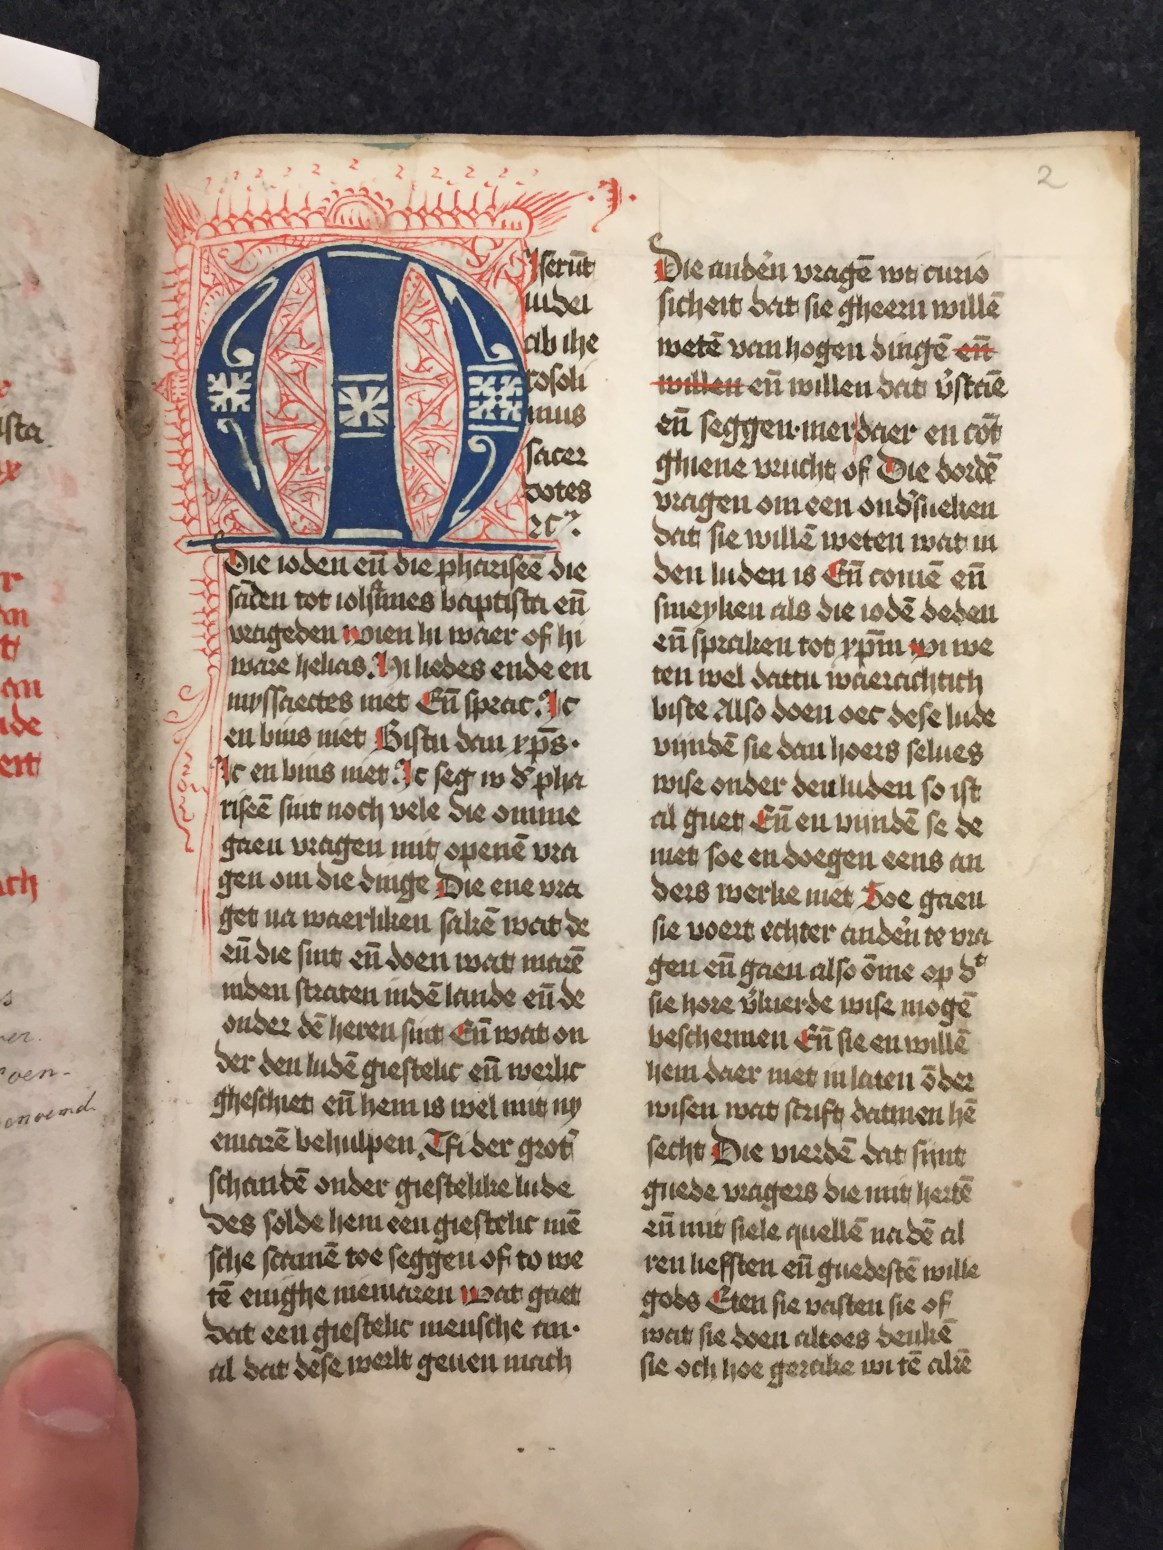 2
.j.
Miserūt
iudei
ab ihe
rosoli
mis
sacer
dotes
⁊cꝰ.
Die ioden eñ die phariseē die
sāden tot iohānes baptista eñ
vrageden wien hi waer of hi
ware helias. Hi liedes ende en
myssaectes niet Eñ sprac. Ic
en bins niet Bistu dan xp̄s.
Ic en bins niet. Ic seg w d' pha
riseē sint noch vele die omme
gaen vragen mit openē vra
gen om die dinge Die ene vra
get na waerliken sakē wat de
eñ die sint eñ doen wat marē
inden straten indē lande eñ de
onder dē heren sint Eñ wat on
der den ludē giestelic eñ werlic
ghesciet eñ hem is wel mit ny
emarē behulpen. Tfi der grot'
schandē onder giestelike lude
Des solde hem een giestelic mē
sche scamē toe seggen of to we
tē enighe niemaren wat gaet
dat een giestelic mensche an.
al dat dese werlt geuen mach
Die ander'n vragē wt curio
sicheit dat sie gheern willē
wetē van hogen dingē eñ
willen eñ willen dat v'staē
eñ seggen. mer daer en cōt
ghiene vrucht of Die dordē
vragen om een ond'sueken
dat sie willē weten wat in
den luden is Eñ comē eñ
smeyken als die iodē deden
eñ spraken tot xp̄m wi we
ten wel dattu waerachtich
biste Also doen oec dese lude
vyndē sie dan hoers selues
wise onder den luden so ist
al guet Eñ en vyndē se de
niet soe en doegen eens an
ders werke niet Soe gaen
sie voert echter ander'n te vra
gen eñ gaen also ōme op dt
sie hore v'kierde wise mogē
beschermen Eñ sie en willē
hem daer niet in laten ōder
wisen wat scrift datmen hē
secht Die vierdē dat sint
guede vragers die mit hertē
eñ mit siele quellē na dē al
ren liefsten eñ guedestē wille
gods Eten sie vasten sie of
wat sie doen altoes denkē
sie och hoe gerake wi tē alrē